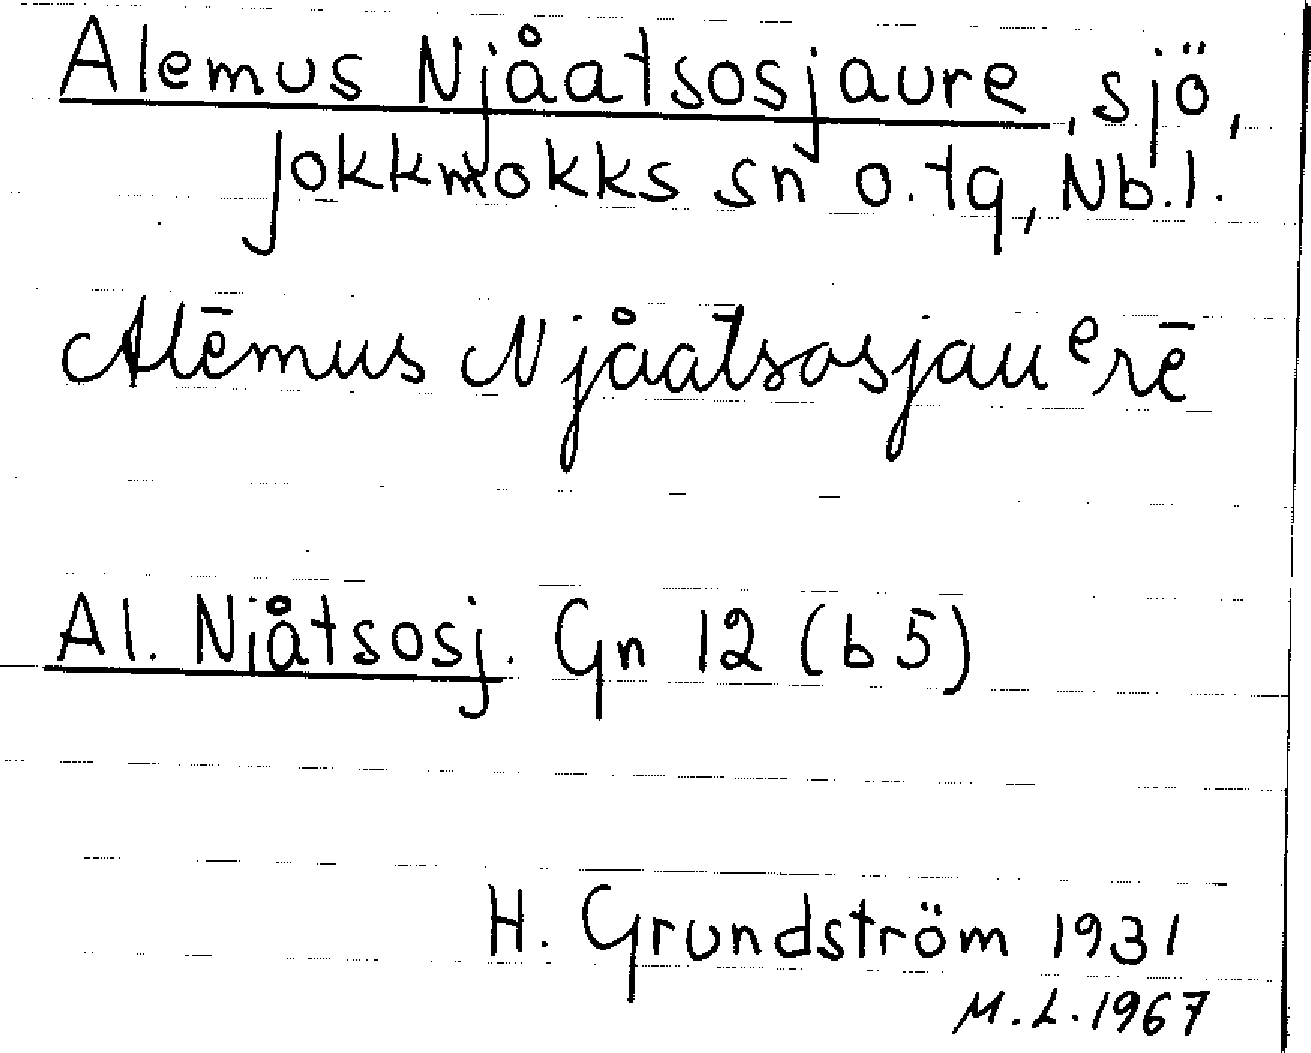 Alemus Njåatsosjaure, sjö,
Jokkmokks sn o. tg, Nb.l.
Alēmus Njåatsosjauᵉrē
Al. Njåtsosj. Gn 12 (b5)
H. Grundström 1931
M.L. 1967